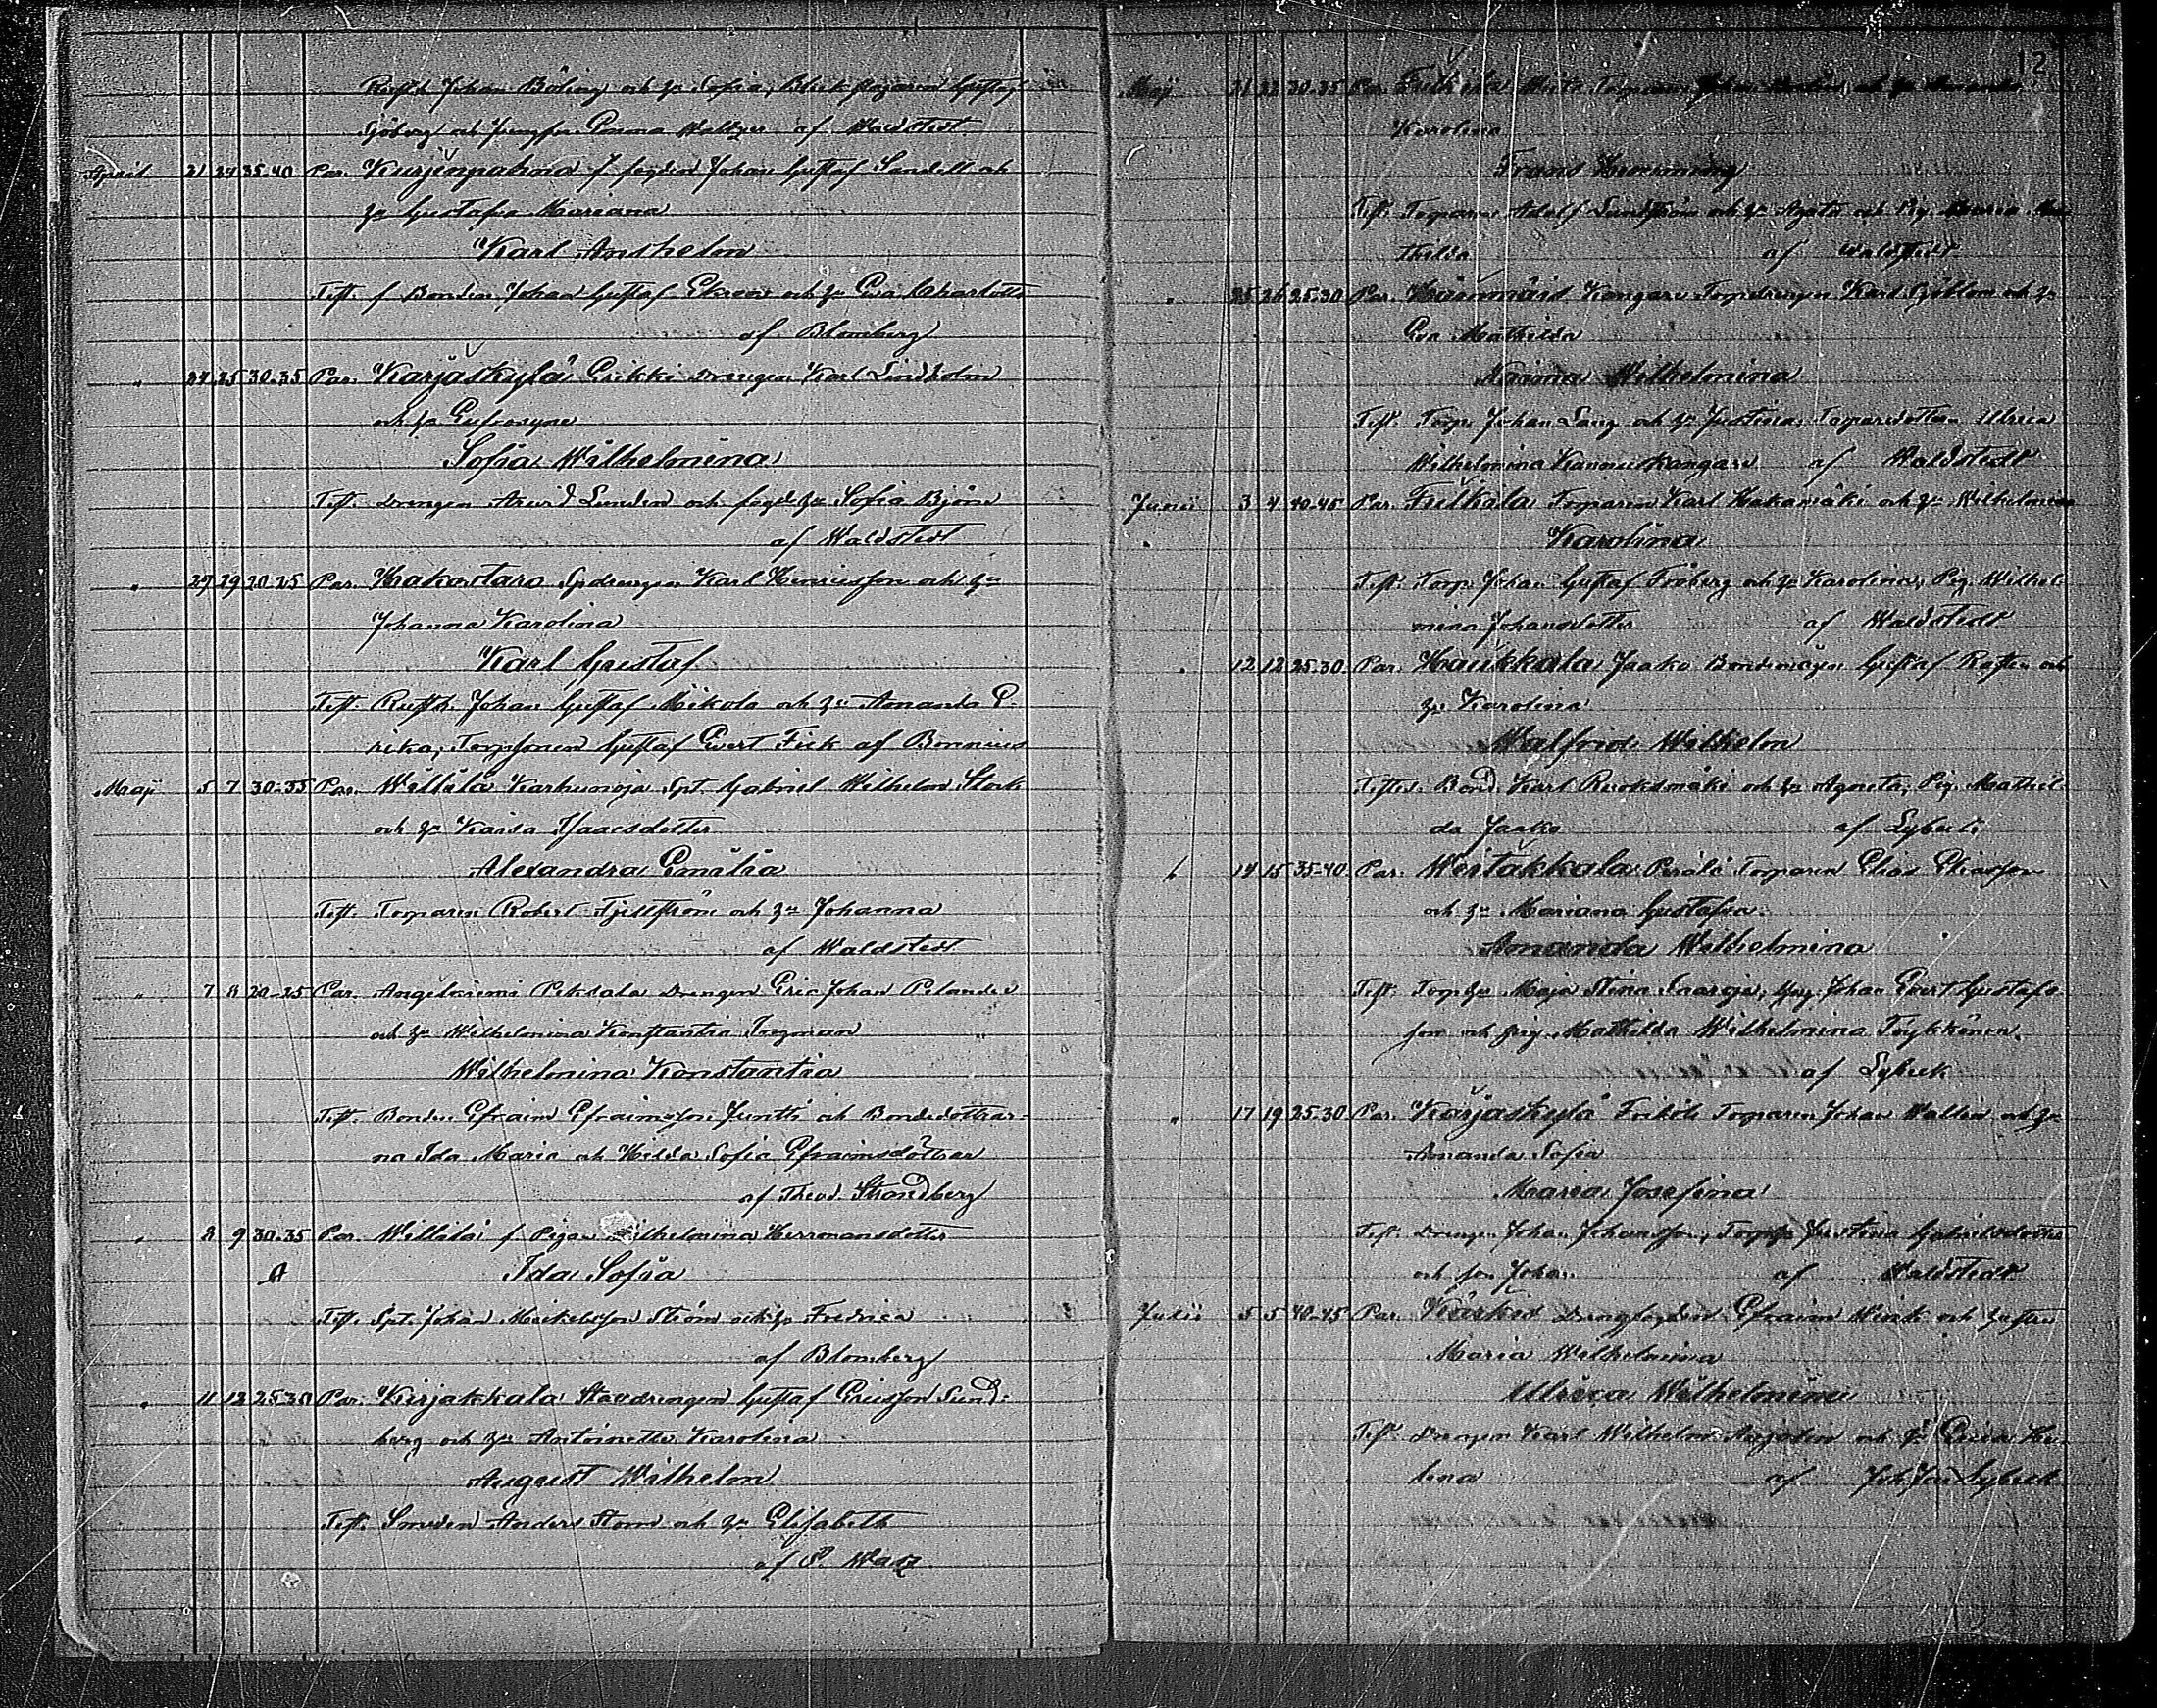 Rusth. Johan Böling och h:u Sofia, Bleckslagaren Gustaf
Sjöberg och Jungfru Emma Waltzer af Waldstedt
April 21 24 35-40 Par. Kurjenpahna f. fogden Johan Gustaf Sandell och
h:u Gustafva Mariana
Karl Anshelm
Test. f. Bonden Johan Gustaf Ekroos och h:u Eva Charlotta
af Blomberg
" 24 25 30-35 Par. Karjaskylä Erikki Drengen Karl Lindholm
och h:u Eufrosyne
Sofia Wilhelmina
Test. Drengen Arvid Lunden och fogde h:u Sofia Björn
af Waldstedt
" 27 29 20-25 Par. Hakostaro Spdrengen Karl Henriksson och h:u
Johanna Karolina
Karl Gustaf
Test. Rusth. Johan Gustaf Mikola och h:u Amanda E-
rika, Torpsonen Gustaf Evert Fisk af Bonnius
Maji 5 7 30-35 Par. Willilä Karhunoja Spt. Gabriel Wilhelm Stork
och h:u Kaisa Isaacsdotter
Alexandra Emilia
Test. Torparen Robert Fjellström och h:u Johanna
af Waldstedt
" 7 8 20-25 Par. Angelniemi Peksala Drengen Eric Johan Pelander
och h:u Wilhelmina Konstantia Ingman
Wilhelmina Konstantia
Test. Bonden Efraim Efraimsson Juntti och Bondedottrar-
na Ida Maria och Hilda Sofia Efraimsdöttrar
af Theod. Strandberg
" 8 9 30-35 Par. Willilä f. Pigan Wilhelmina Hermansdotter
Ida Sofia
Test. Spt. Johan Mickelsson Ström och h:u Fredrica
af Blomberg
" 11 12 25-30 Par. Kirjakkala Stadrengen Gustaf Ericsson Sund-
berg och h:u Antoinette Karolina
August Wilhelm
Test. Smeden Anders Stam och h:u Elisabeth
af P. Warz
12
Maji 21 22 30-35 Par.
Karolina
Frans Hemming
Test. Torparen Adolf Lundström och h:u Agata och Pig. Maria Ma-
thilda af Waldstedt
" 25 26 25-30 Par. Kangare Torpdrengen Karl Sjöblom och h:u
Eva Mathilda
Naima Wilhelmina
Test. Torp. Johan Lang och h:u Justina, Torparedottern Ulrica
Wilhelmina Kangare af Waldstedt
Junii 3 4 40-45 Par. Fulkkila Torparen Karl Hakamäki och h:u Wilhelmina
Karolina
Test. Torp. Johan Gustaf Fröberg och h:u Karolina, Pig. Wilhel-
mina Johansdotter af Waldstedt
" 12 12 25-30 Par. Haukkala Jaako Bondemågen Gustaf Rosten och
h:u Karolina
Walfrid Wilhelm
Testes. Bond. Karl Ruoksmäki och h:u Agneta, Pig. Mathil-
da Jaako af Lybeck
14 15 35-40 Par. Weitakkala Perälä Torparen Elias Eliasson
och h:u Mariana Gustafva
Amanda Wilhelmina
Test. Torp.h:u Maja Stina Saaroja, Yng. Johan Evert Gustafs-
son och pig. Mathilda Wilhelmina Töykkönen
af Lybeck
" 17 19 25-30 Par. Karjaskylä Erikilä Torparen Johan Wallin och h:u
Amanda Sofia
Maria Josefina
Test. Drengen Johan Johansson, Torp.h:u Justina Gabrielsdotter
och son Johan af Waldstedt
Julii 5 5 40-45 Par. Kärkis Drengfogden Efraim Wink och hustru
Maria Wilhelmina
Ulrica Wilhelmina
Test. Drengen Karl Wilhelm Anjelin och h:u Erica He-
lena af Joh. Jac. Lybeck